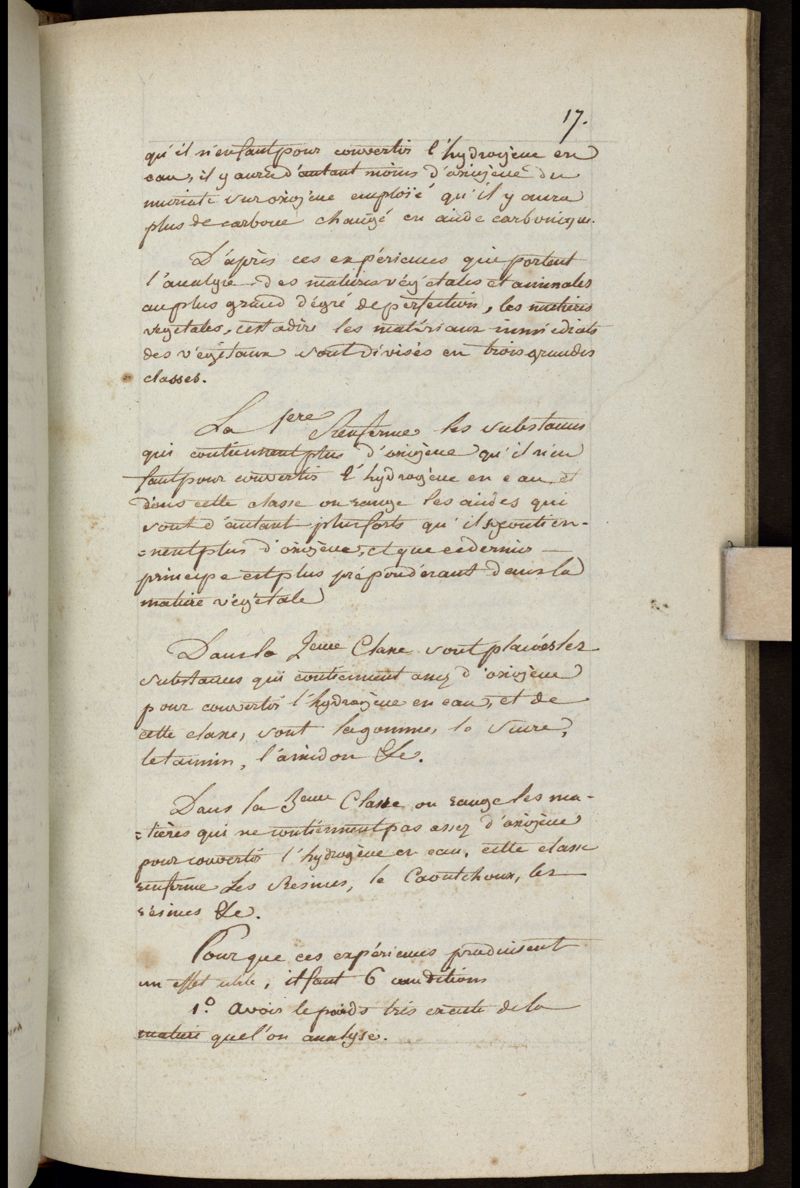 17.
qu'il n'en faut pour convertir l'hydrogène en
eau, il y aura d'autant moins d'oxigène du
muriate suroxigène employé qu'il y aura
plus de carbone changé en acide carbonique.
D'après ces expériences qui portent
l'analyse des matières végétales et animales
au plus grand dégré de perfection, les matières
vegetales, c'est adire les matériaux immédiats
des végétaux sont divisés en trois grandes
classes.
La 1ere Renferme les substances
qui contiennent plus d'oxigène qu'il n'en
faut pour convertir l'hydrogène en eau, et
dans cette classe on range les acides qui
sont d'autant plus forts qu'ils contien-
=nent plus d'oxigène, et que ce dernier
principe est plus prépondérant dans la
matière végétale
Dans la 2eme Classe sont placées les
substances qui contiennent assez d'oxigène
pour convertir l'hydrogène en eau, et de
cette classe, sont la gomme, le sucre,
le tannin, l'amidon &c.
Dans la 3eme Classe on range les ma-
=tières qui ne contiennent pas assez d'oxigène
pour convertir l'hydrogène en eau, cette classe
renferme Les Resines, le Caoutchoux, les
résines &c.
Pour que ces expériences produisent
un effet utile, il faut 6 conditions
1.° avoir le poids très exacte de la
matière que l'on analyse.